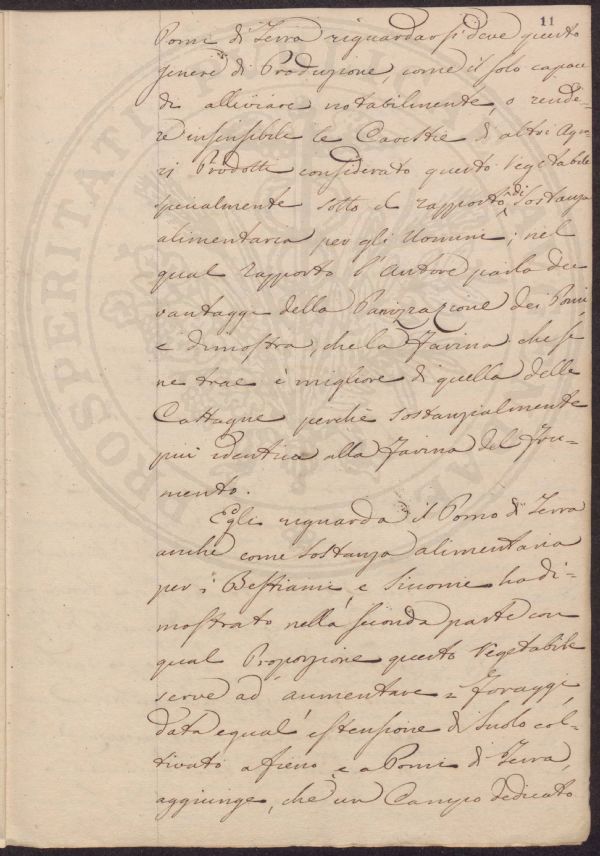 11
Pomi di Terra riguardar si deve questo
genere di Produzione, come il solo capace
di alliviare notabilmente, o rende-
re insensibile le Carestie di altri Agra-
rj Prodotti considerato questo vegetabile
specialmente sotto il rapporto di sostanza
alimentaria per gli Uomini; nel
qual rapporto l'Autore parla dei
vantaggi della Panizzazione dei Pomi
e dimostra, che la Farina che si
ne trae è migliore di quella delle
Castagne perchè sostanzialmente
più identica alla Farina del Fru-
mento.
Egli riguarda il Pomo di Terra
anche come sostanza alimentaria
per i Bestiami, e siccome ha di-
mostrato nella seconda parte con
qual Proporzione questo Vegetabile
serve ad aumentare i Foraggi,
data equal' estensione di Suolo col-
tivato a fieno, e a Pomi di Terra,
aggiunge, che un Campo dedicato
PROSPERITATI